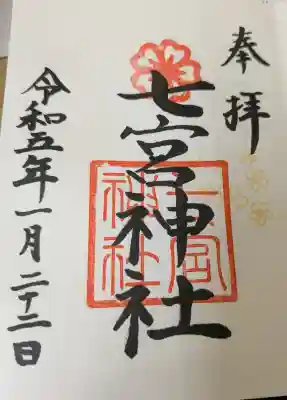 奉拝
七宮神社
七宮神社
令和五年一月二十二日